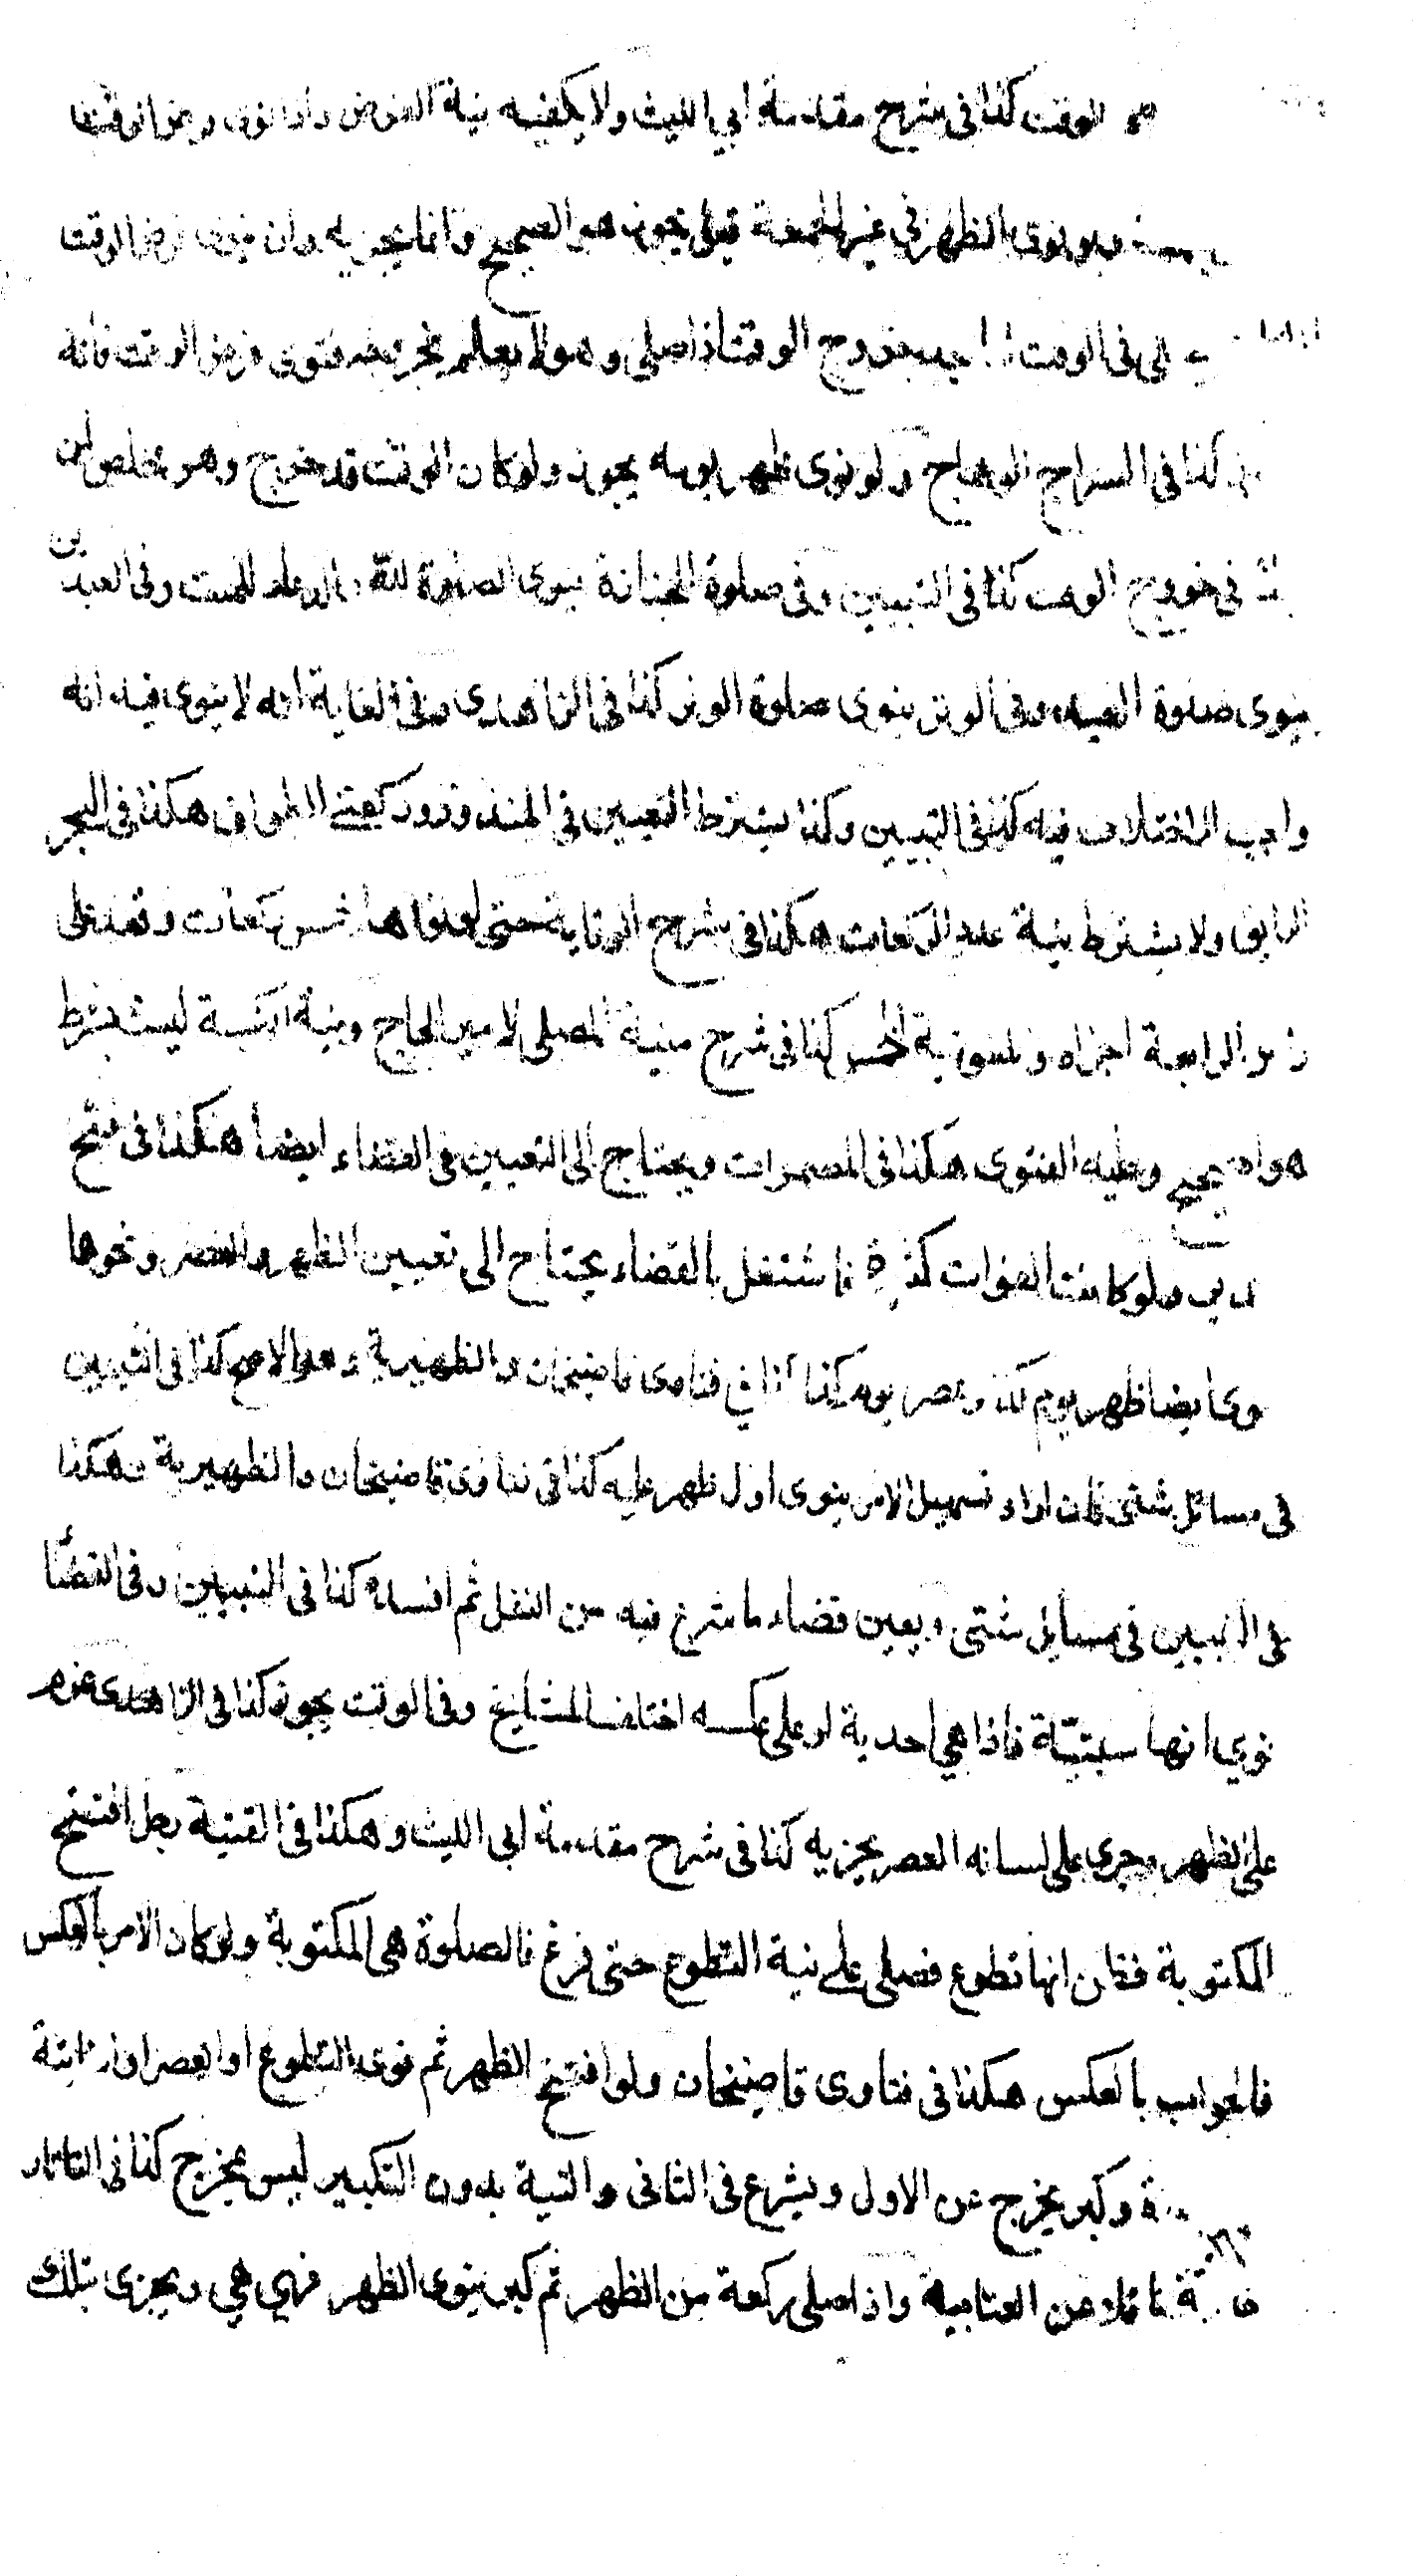 الوقت كذا فى شرح مقدمة ابي الليث ولا يكفيه نية الفرض واذا نوى فرض الوقت
ولو نوى الظهر في غير الجمعة قيل يجوز هو الصحيح وانما يجزيه وان فرض الوقت
فى الوقت بعد خروج الوقت اذا صلى وهو لا يعلم بخروجه فنوى فرض الوقت فانه
كذا فى السراج الوهاج ولو نوى ظهر يومه يجوز ولو كان الوقت قد خرج وهو مخلص لمن
فى خروج الوقت كذا فى التبيين وفى صلوة الجنازة ينوى الصلوة لله والدعاء للميت وفى العيدين
ينوى صلوة العيد وفى الوتر ينوى صلوة الوتر كذا فى الزاهدى وفى الغاية انه لا ينوى فيه انه
واجب للاختلاف فيه كذا فى التبيين وكذا يشترط التعيين فى المنذور وركعتى الطواف هكذا فى البحر
الرايق ولا يشترط نية عدد الركعات هكذا فى شرح الوقاية حتى لو نواها خمس ركعات وقعد على
راس الرابعة اجزاه ويلغو نية الخمس كذا فى شرح منية المصلى لامير الحاج ونية الكعبة ليست بشرط
هو الصحيح وعليه الفتوى هكذا فى المضمرات ويحتاج الى التعيين فى القضاء ايضا هكذا فى فتح
القدير ولو كانت الفوائت كثيرة فاشتغل بالقضاء يحتاج الى تعيين الظهر والعصر ونحوها
وينوى ايضا ظهر يوم كذا وعصر يوم كذا كذا في فتاوى قاضيخان والظهيرية وهو الاصح كذا فى التبيين
فى مسائل شتى فان اراد تسهيل الامر ينوى اول ظهر عليه كذا فى فتاوى قاضيخان والظهيرية وهكذا
فى التبيين فى مسايل شتى ويعين قضاء ما شرع فيه من النفل ثم افسده كذا فى التبيين وفى القضا
نوى انها سبتية فاذا هي احدية او على عكسه اختلف المشايخ وفى الوقت يجوز كذا فى الزاهدى عزم
على الظهر وجرى على لسانه العصر يجزيه كذا فى شرح مقدمة ابى الليث وهكذا فى القنية رجل افتتح
المكتوبة فظن انها تطوع فصلى على نية التطوع حتى فرغ فالصلوة هى المكتوبة ولو كان الامر بالعكس
فالجواب بالعكس هكذا فى فتاوى قاضيخان ولو افتتح الظهر ثم نوى التطوع او العصر او الفائتة
وكبر يخرج عن الاول ويشرع فى الثانى والنية بدون التكبير ليس بمخرج كذا فى التاتار
خانية ناقلا عن العتابية واذا صلى ركعة من الظهر ثم كبر ينوى الظهر فهي هي ويجزى بتلك